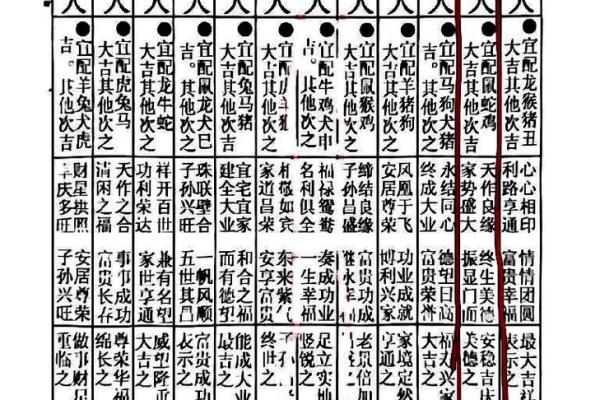 宜配龙猴猪丑
大吉其他次吉
宜配鼠蛇鸡
大吉其他次吉
宜配马狗猪犬
吉。其他次吉
宜配羊猪狗
大吉其他次之
宜配鼠猴鸡
大吉其他次之
宜配牛鸡犬申
吉。其他次吉
宜配
大吉其他次之
宜配兔马猪
大吉其他次之
宜配鼠龙犬巳
吉。其他次吉
宜配龙牛蛇
大吉其他次之
宜配虎兔马
大吉其他次之
宜配羊兔犬虎
吉。其他次吉
心心相印
利路亨通
天作良缘
家势盛大
永结同心
终成大业
凤凰于飞
安居尊荣
缔结良缘
子孙昌盛
福禄鸳鸯
名利俱全
相敬如宾
家道昌荣
宜宅宜家
建全大业
珠联璧合
子孙兴旺
祥开百世
功利荣达
天作之合
清闲之福
财星拱照
庆多旺
情情团圆
富贵幸福
终生美德
振显门而
德望日高
富贵荣誉
功业成就
博利兴家
富贵功成
继
奏成功业
一生幸福
东来紫气
安享富贵
和合之福
而有德望
一帆风顺
五世其昌
兼有名望
家世亨通
事事成功
富贵长存
安居尊荣
子孙兴旺
最大吉祥
表示之
安稳吉庆
美德之
福寿兴家
大吉之
家境定然
亨通之
老景倍加
之
足立实地
竖锐之
子
终世之
能成大业
最吉之
富贵成功
表示之
威望隆重
大吉之
尊荣华福
绵长之
做事财足
重临之